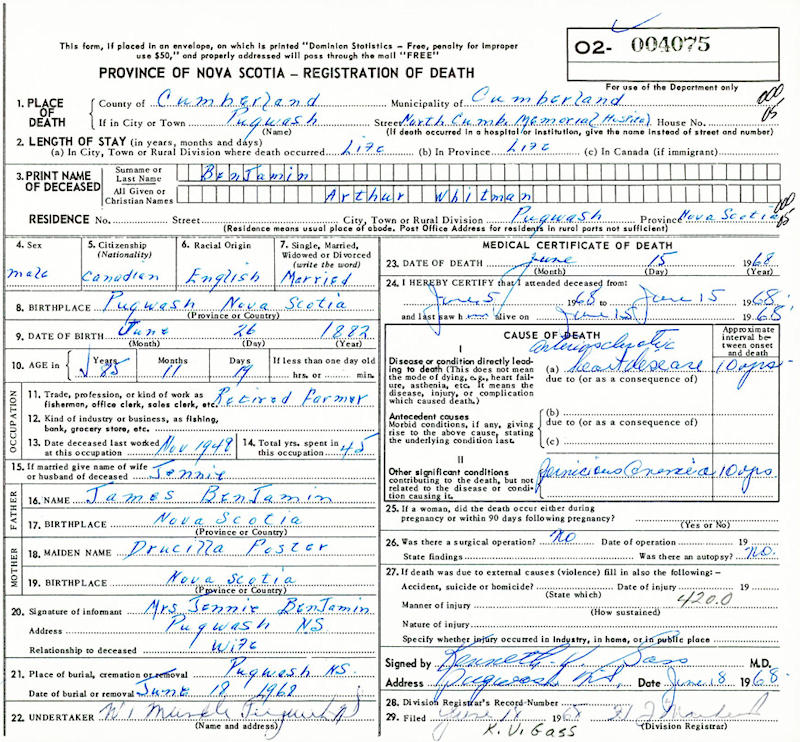 This form, if placed in an envelope, on which is printed "Dominion Statistics – Free, penalty for improper
use $50," and properly addressed will pass through the mail "FREE"
PROVINCE OF NOVA SCOTIA – REGISTRATION OF DEATH
O2- 004075
For use of the Department only
1. PLACE OF DEATH
County of Cumberland Municipality of Cumberland
If in City or Town Pugwash Street North Cumb. Memorial (Hospital) House No.
(Name) (If death occurred in a hospital or institution, give the name instead of street and number)
000
05
2. LENGTH OF STAY (in years, months and days)
(a) In City, Town or Rural Division where death occurred Life (b) In Province Life (c) In Canada (if immigrant)
3. PRINT NAME OF DECEASED
Surname or Last Name BenJamin
All Given or Christian Names Arthur Whitman
RESIDENCE No. Street City, Town or Rural Division Pugwash Province Nova Scotia
000
05
(Residence means usual place of abode. Post Office Address for residents in rural parts not sufficient)
4. Sex
male
5. Citizenship (Nationality)
Canadian
6. Racial Origin
English
7. Single, Married, Widowed or Divorced (write the word)
Married
8. BIRTHPLACE Pugwash Nova Scotia
(Province or Country)
9. DATE OF BIRTH June 26 1882
(Month) (Day) (Year)
10. AGE in Years Months Days If less than one day old
85 11 19 hrs. or min.
OCCUPATION
11. Trade, profession, or kind of work as fisherman, office clerk, sales clerk, etc. Retired Farmer
12. Kind of industry or business, as fishing, bank, grocery store, etc.
13. Date deceased last worked at this occupation Nov 1949
14. Total yrs. spent in this occupation 45
15. If married give name of wife or husband of deceased Jennie
FATHER
16. NAME James BenJamin
17. BIRTHPLACE Nova Scotia
(Province or Country)
MOTHER
18. MAIDEN NAME Drucilla Foster
19. BIRTHPLACE Nova Scotia
(Province or Country)
20. Signature of informant Mrs Jennie BenJamin
Address Pugwash NS
Relationship to deceased Wife
21. Place of burial, cremation or removal Pugwash NS.
Date of burial or removal June 18 1968
22. UNDERTAKER
(Name and address)
MEDICAL CERTIFICATE OF DEATH
23. DATE OF DEATH June 15 1968
(Month) (Day) (Year)
24. I HEREBY CERTIFY that I attended deceased from:
June 5 1968 to June 15 1968
and last saw h alive on June 15 1968
CAUSE OF DEATH
Approximate interval between onset and death
I
Disease or condition directly leading to death (This does not mean the mode of dying, e.g., heart failure, asthenia, etc. It means the disease, injury, or complication which caused death.)
arteriosclerotic
(a) heart disease 10 yrs.
due to (or as a consequence of)
Antecedent causes
Morbid conditions, if any, giving rise to the above cause, stating the underlying condition last.
(b)
due to (or as a consequence of)
(c)
II
Other significant conditions contributing to the death, but not related to the disease or condition causing it.
Pernicious Anemia 10 yrs.
25. If a woman, did the death occur either during pregnancy or within 90 days following pregnancy?
(Yes or No)
26. Was there a surgical operation? No Date of operation 19
State findings Was there an autopsy? No.
27. If death was due to external causes (violence) fill in also the following:-
Accident, suicide or homicide? Date of injury 19
(State which)
420.0
Manner of injury
(How sustained)
Nature of injury
Specify whether injury occurred in industry, in home, or in public place
Signed by Kenneth V. Gass M.D.
Address Pugwash N.S. Date June 18 1968.
28. Division Registrar's Record Number
29. Filed June 18 1968
(Division Registrar)
K. V. Gass